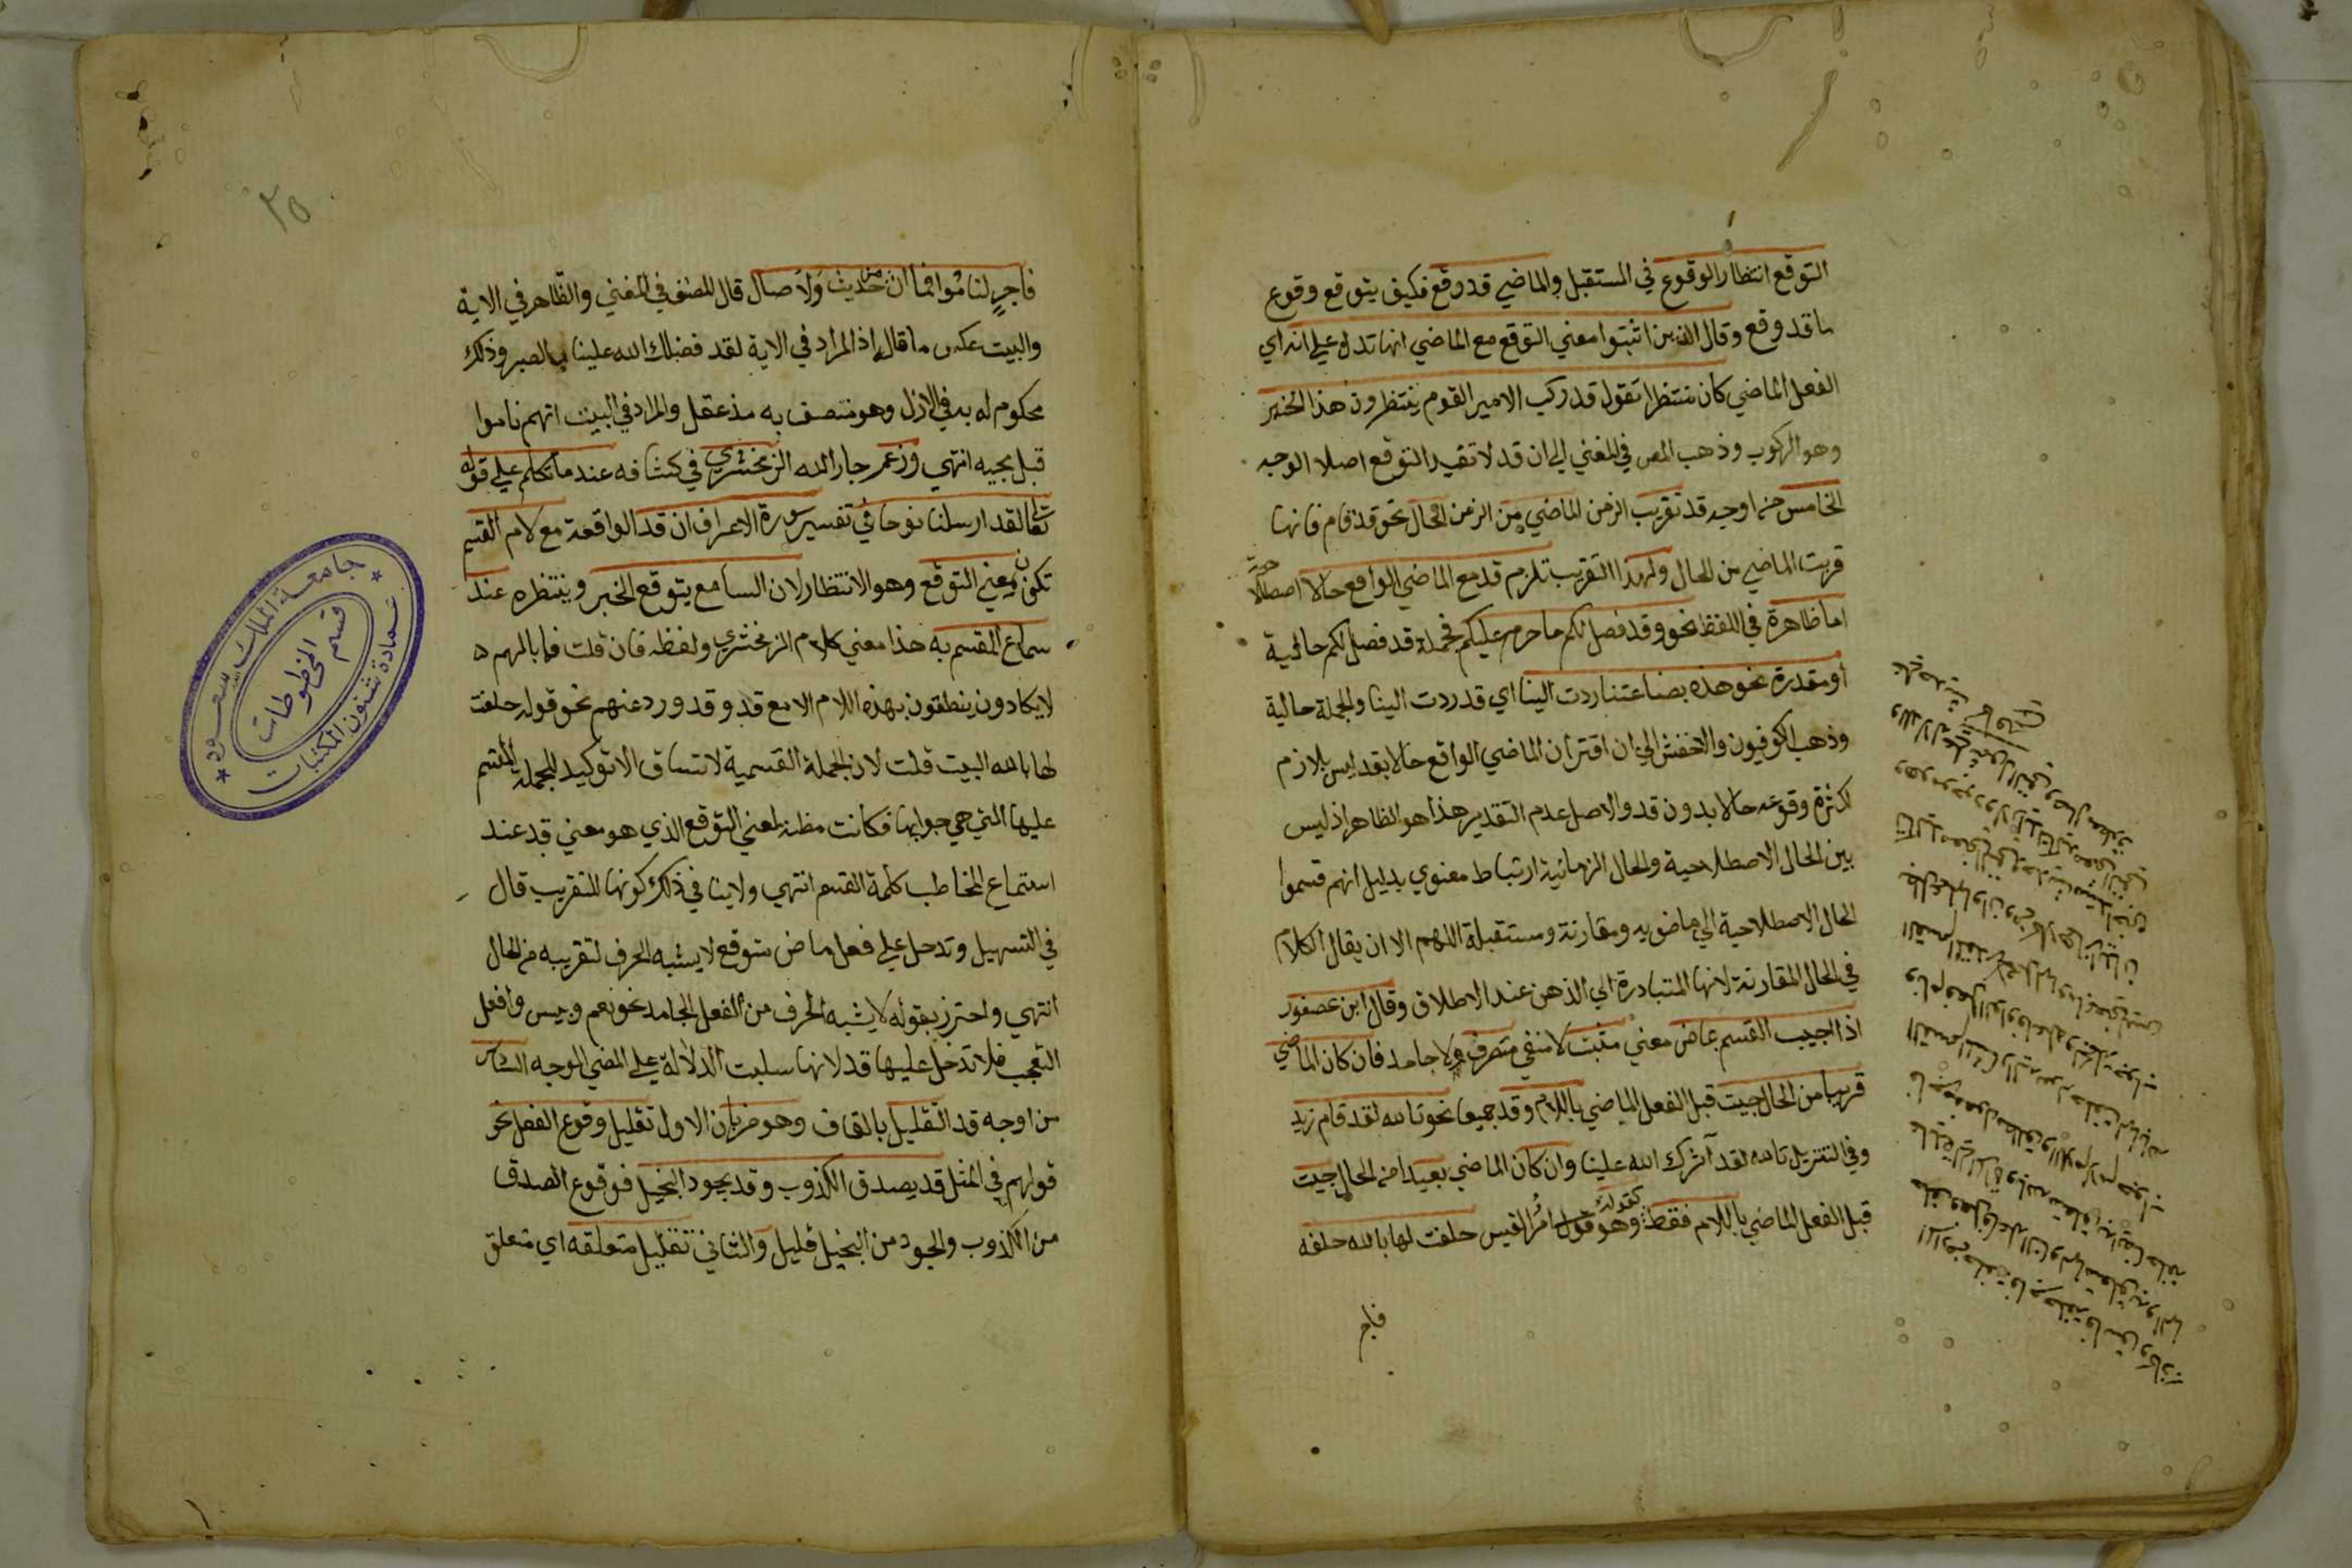 التوقع انتظار الوقوع في المستقبل والماضي قد وقع فكيف يتوقع وقوع
ما قد وقع وقال الذين اثبتوا معني التوقع مع الماضي انها تدل علي انه اي
الفعل الماضي كان منتظرا تقول قد ركب الامير القوم ينتظرون هذا الخبر
وهو الركوب وذهب المص في المغني الي ان قد لا تفيد التوقع اصلا الوجه
الخامس من اوجه قد تقريب الزمن الماضي من الزمن الحال نحو قد قام فانها
قربت الماضي من الحال ولهذا التقريب تلزم قد مع الماضي الواقع حالا اصطلاحية
اما ظاهرة في اللفظ نحو وقد فصل لكم ما حرم عليكم فجملة قد فصل لكم حالية
او مقدرة نحو هذه بضاعتنا ردت الينا اي قد ردت الينا والجملة حالية
وذهب الكوفيون والاخفش الي ان اقتران الماضي الواقع حالا بقد ليس بلازم
لكثرة وقوعه حالا بدون قد والاصل عدم التقدير هذا هو الظاهر اذ ليس
بين الحال الاصطلاحية والحال الزمانية ارتباط معنوي بدليل انهم قسموا
الحال الاصطلاحية الي ماضويه ومقارنة ومستقبلة اللهم الا ان يقال الكلام
في الحال المقارنة لانها المتبادرة الي الذهن عند الاطلاق وقال ابن عصفور
اذا اجيب القسم بماض معني مثبت لا منفي متصرف ولا جامد فان كان الماضي
قريبا من الحال جيت قبل الفعل الماضي باللام وقد جميعا نحو تالله لقد قام زيد
وفي التنزيل تالله لقد آثرك الله علينا وان كان الماضي بعيدا من الحال جيت
قبل الفعل الماضي باللام فقط كقوله وهو قول امرا القيس حلفت لها بالله حلفه
فاجر
٢٥
فاجر لناموا فما ان من حديث ولا صال قال المصنف في المغني والظاهر في الاية
والبيت عكس ما قال اذ المراد في الاية لقد فضلك الله علينا بالصبر وذلك
محكوم له به في الازل وهو متصف به مذ عقل والمراد في البيت انهم ناموا
قبل مجيه انتهي وزعم جار الله الزمخشري في كشافه عند ما تكلم علي قوله
تعالي لقد ارسلنا نوحا في تفسير سورة الاعراف ان قد الواقعة مع لام القسم
تكون بمعني التوقع وهو الانتظار لان السامع يتوقع الخبر وينتظره عند
سماع المقسم به هذا معني كلام الزمخشري ولفظه فان قلت فما بالهم
لا يكادون ينطقون بهذه اللام الا مع قد وقد ورد عنهم نحو قوله حلفت
لها بالله البيت قلت لان الجملة القسمية لا تساق الا توكيد للجملة المقسم
عليها التي هي جوابها فكانت مظنة لمعني التوقع الذي هو معني قد عند
استماع المخاطب كلمة القسم انتهي ولا ينافي ذلك كونها للتقريب قال
في التسهيل وتدخل علي فعل ماض متوقع لا يشبه الحرف لتقريبه من الحال
انتهي واحترز بقوله لا يشبه الحرف من الفعل الجامد نحو نعم وبيس وافعل
التعجب فلا تدخل عليها قد لانها سلبت الدلالة علي المضي الوجه السادس
من اوجه قد التقليل بالقاف وهو ضربان الاول تقليل وقوع الفعل نحو
قولهم في المثل قد يصدق الكذوب وقد يجود البخيل فوقوع الصدق
من الكذوب والجود من البخيل قليل والثاني تقليل متعلقه اي متعلق
جامعة الملك سعود
قسم المخطوطات
عمادة شئون المكتبات